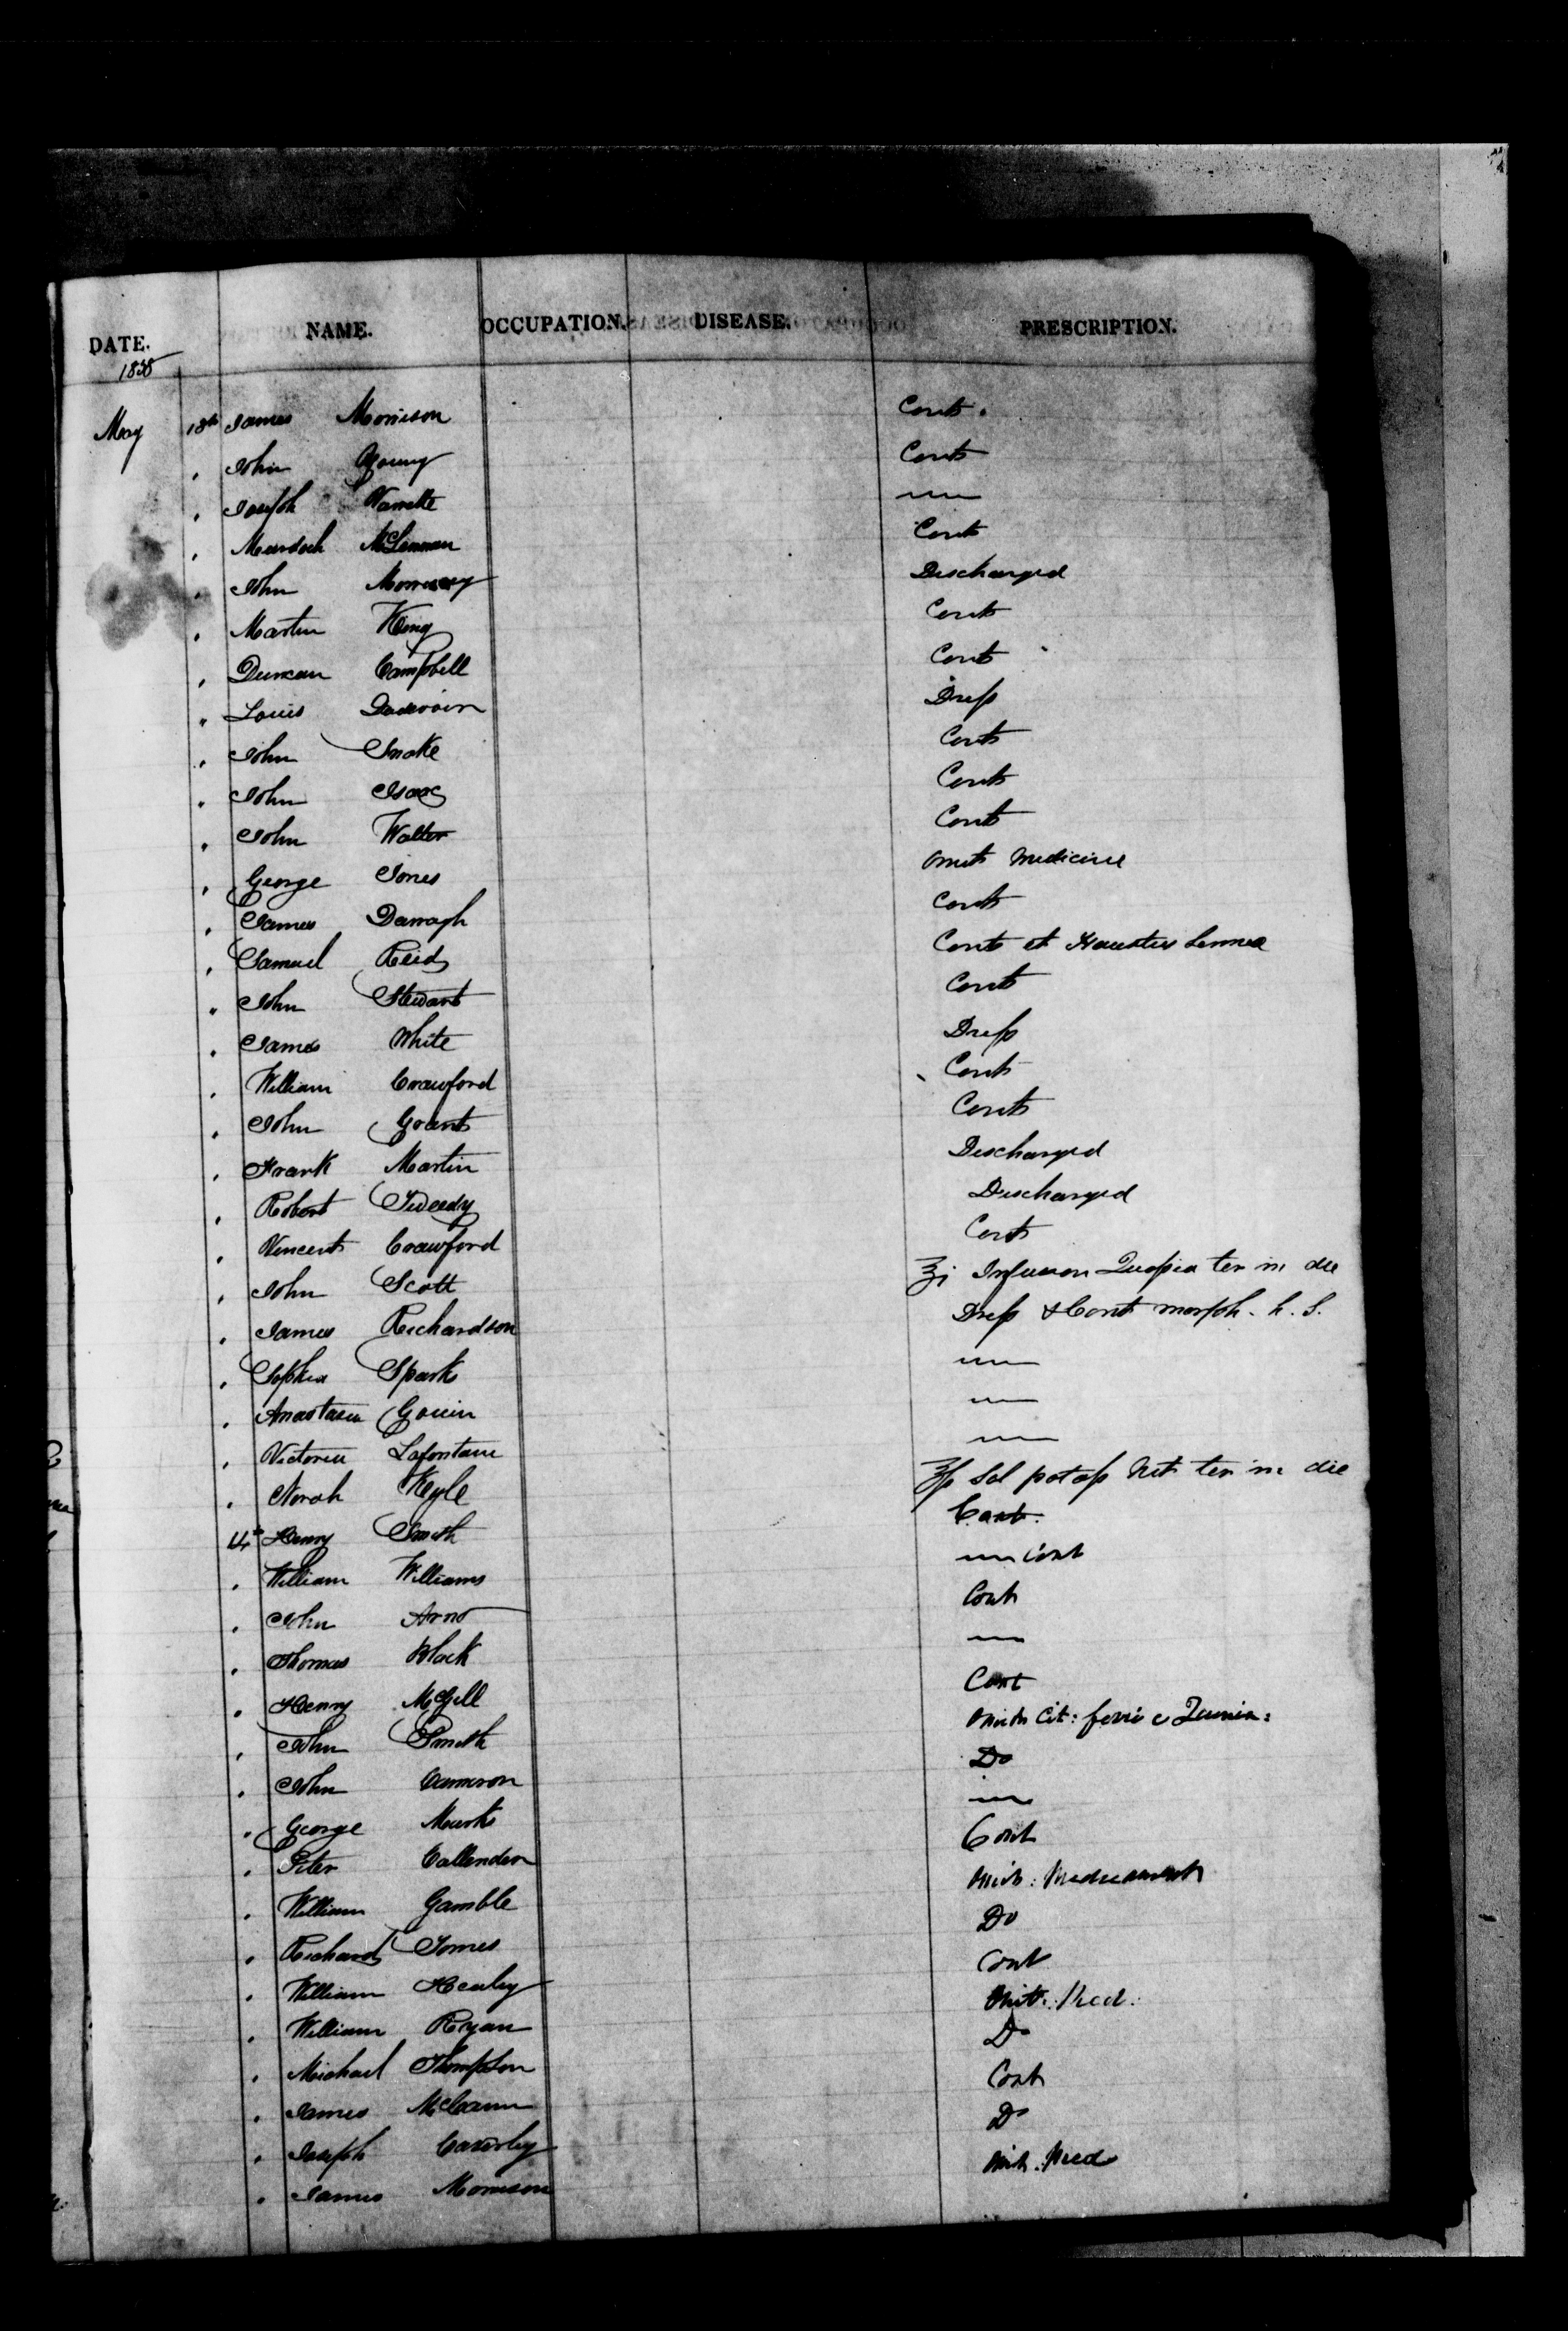 DATE. NAME. OCCUPATION. DISEASE. PRESCRIPTION.
1858
May 13th James Morrison Cont.
" John Young Cont
" Joseph
" Murdoch McLennan Cont
" John Morrissey Discharged
" Martin King Cont
" Duncan Campbell Cont
" Louis Dress
" John Snake Cont
" John Isaac Cont
" John Walter Cont
" George Jones Omit Medicine
" James Darragh Cont
" Samuel Reid Cont et Haustus Senna
" John Stewart Cont
" James White Dress
" William Crawford Cont
" John Grant Cont
" Frank Martin Discharged
" Robert Tweedy Discharged
" Vincent Crawford Cont
" John Scott ʒj Infusion Quassia ter in die
" James Richardson Dress & Cont morph. h. S.
" Sophia Sparks
" Anastasia Gouin
" Victoria Lafontain
" Norah Kyle ʒss Sol potass Nit ter in die
14th Henry Smith Cont.
" William Williams Cont
" John Arno Cont
" Thomas Black
" Henry McGill Cont
" John Smith Omit Cit: ferri c
" John Cameron Do
" George Marks
" Peter Callender Cont
" William Gamble Omit: Medicament
" Richard Jones Do
" William Healey Cont
" William Ryan Omit: Med.
" Michael Thompson Do
" James McCann Cont
" Joseph Caverley Do
" James Morrison Omit. Med